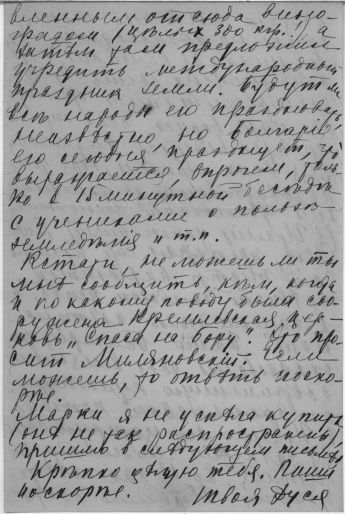 вленным отсюда виногра-
градом (целых 300 кгр.) а
затѣм даси предложил
учредить международный
праздник земли. Будут ли
всѣ народы его праздновать,
неизвѣстно, но Болгарія
его сегодня празднует, что
выражается, впрочем, толь-
ко в 15 минутной бесѣдѣ
с учениками о пользѣ
земледѣлія и т.п.
Кстати, не можешь ли ты
мнѣ сообщить, кѣм, когда
и по какому поводу была соо-
ружена кремлевская цер-
ковь "Спаса на бору". Это про-
сит Миляновский. Если
можешь, то отвѣть поско-
рѣе.
Марки я не успѣла купить
(онѣ не так распространены),
пришлю в слѣдующем письмѣ.
Крѣпко цѣлую тебя. Пиши
поскорѣе.
Твоя Дуся